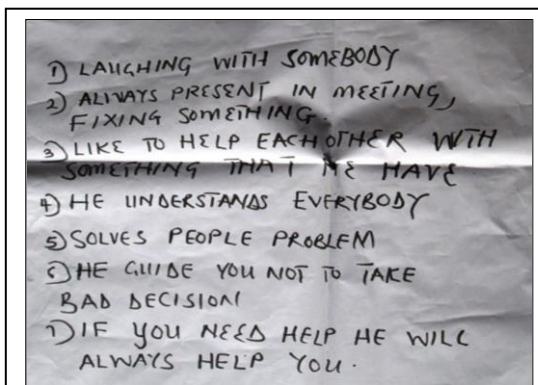 1) LAUGHING WITH SOMEBODY
2) ALWAYS PRESENT IN MEETING,
FIXING SOMETHING.
3) LIKE TO HELP EACHOTHER WITH
SOMETHING THAT HE HAVE
4) HE UNDERSTANDS EVERYBODY
5) SOLVES PEOPLE PROBLEM
6) HE GUIDE YOU NOT TO TAKE
BAD DECISION
7) IF YOU NEED HELP HE WILL
ALWAYS HELP YOU.